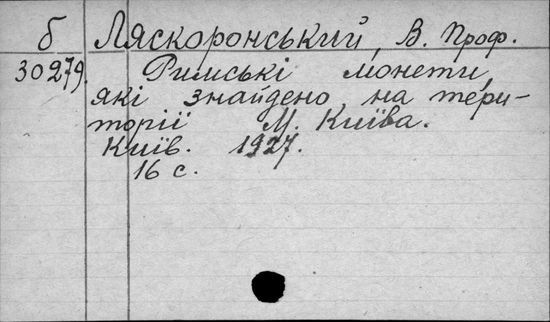 б Ляскоронський, В. Проф.
30279. Римські монети,
які знайдено на тери-
торії М. Київа.
Київ. 1927.
16 с.